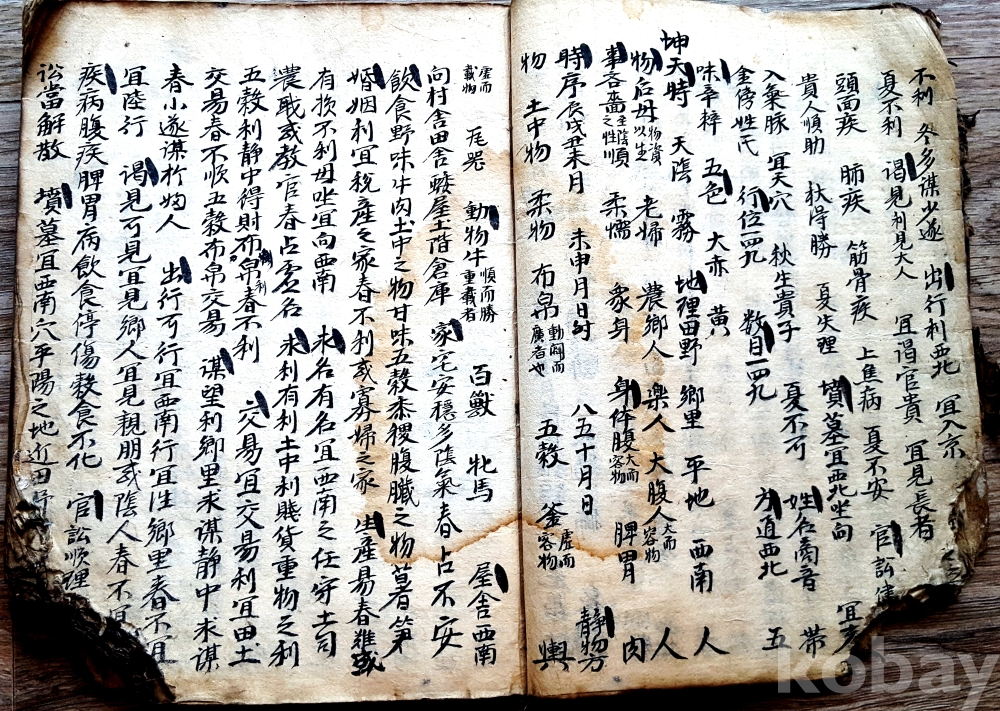 不利 冬多謀少遂 出行利西北 宜入京
夏不利 謁見利見大人 宜謁官貴 宜見長者
頭面疾 肺疾 筋骨疾 上焦病 夏不安 官訟
貴人順助 秋得勝 夏失理 墳墓宜西北坐向 宜
入乘脉 宜天穴 秋生貴子 夏不可 姓名商音 帶
金傍姓氏 行位四九 数目一四九 方道西北 五
味辛梓 五色 大赤 黄
坤天時 天陰 霧 地理田野 鄉里 平地 西南 人
物后母以物資生之 老婦 農鄉人 眾人 大腹人大而容物 人
事吝嗇至陰之性 順 柔懦 衆身 身体腹大而容物 脾胃 肉
時序辰戌丑未月 未申月日时 八五十月日 静物方
物 土中物 柔物 布帛動闢而廣者也 五穀 釜虛而容物 輿
虛而載物 瓦器 動物牛順而勝重載者 百獸 牝馬 屋舍西南
向村舍田舍矮屋土階倉庫 家宅安穩多陰氣春占不安
飲食野味牛肉土中之物甘味五穀黍稷腹臟之物芋笋
婚姻利宜税產之家春不利或寡婦之家 生產易春難或
有損不利母坐宜向西南 求名有名宜西南之任守土司
農職或教官春占虛名 求利有利土中利賤貨重物之利
五穀利静中得財布帛利春不利 交易宜交易利宜田土
交易春不順五穀布帛交易 謀望利鄉里求謀静中求謀
春小遂謀於婦人 出行可行宜西南行宜往鄉里春不宜
宜陸行 謁見可見宜見鄉人宜見親朋或陰人春不宜
疾病腹疾脾胃病飲食停傷穀食不化 官訟順理
訟當解散 墳墓宜西南穴平陽之地近田野
kobay